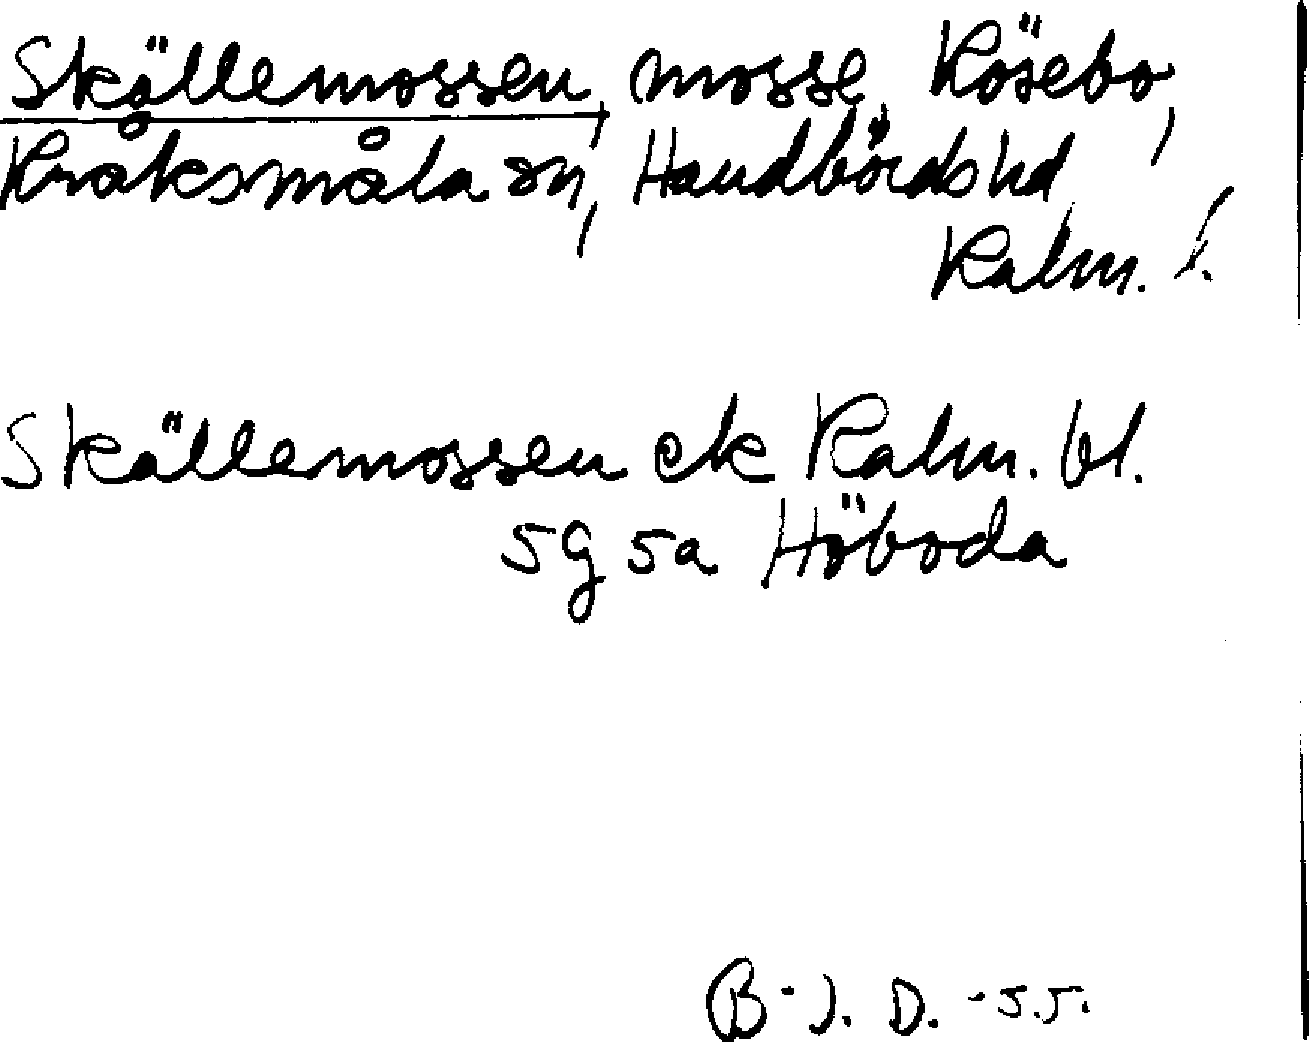 Skällemossen, mosse, Kösebo,
Kråksmåla sn, Handbörds hd
Kalm. l.
Skällemossen ek Kalm. bl.
5g 5a Höboda
B-J. D. -55.